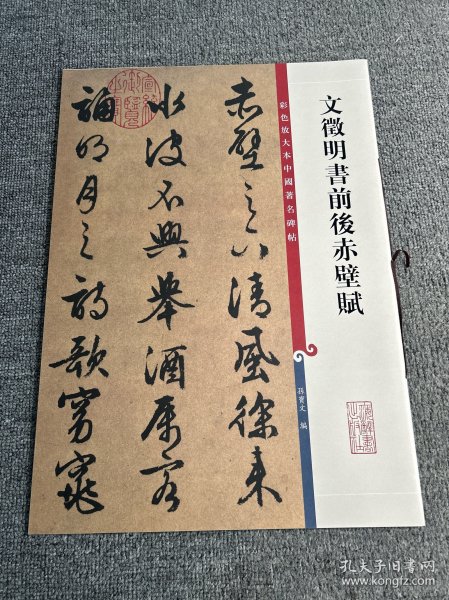 文徵明書前後赤壁賦
彩色放大本中國著名碑帖
孫寶文 編
赤壁之下清風徐来
水波不興舉酒属客
誦明月之詩歌窈窕
孔夫子旧书网
www.kongfz.com